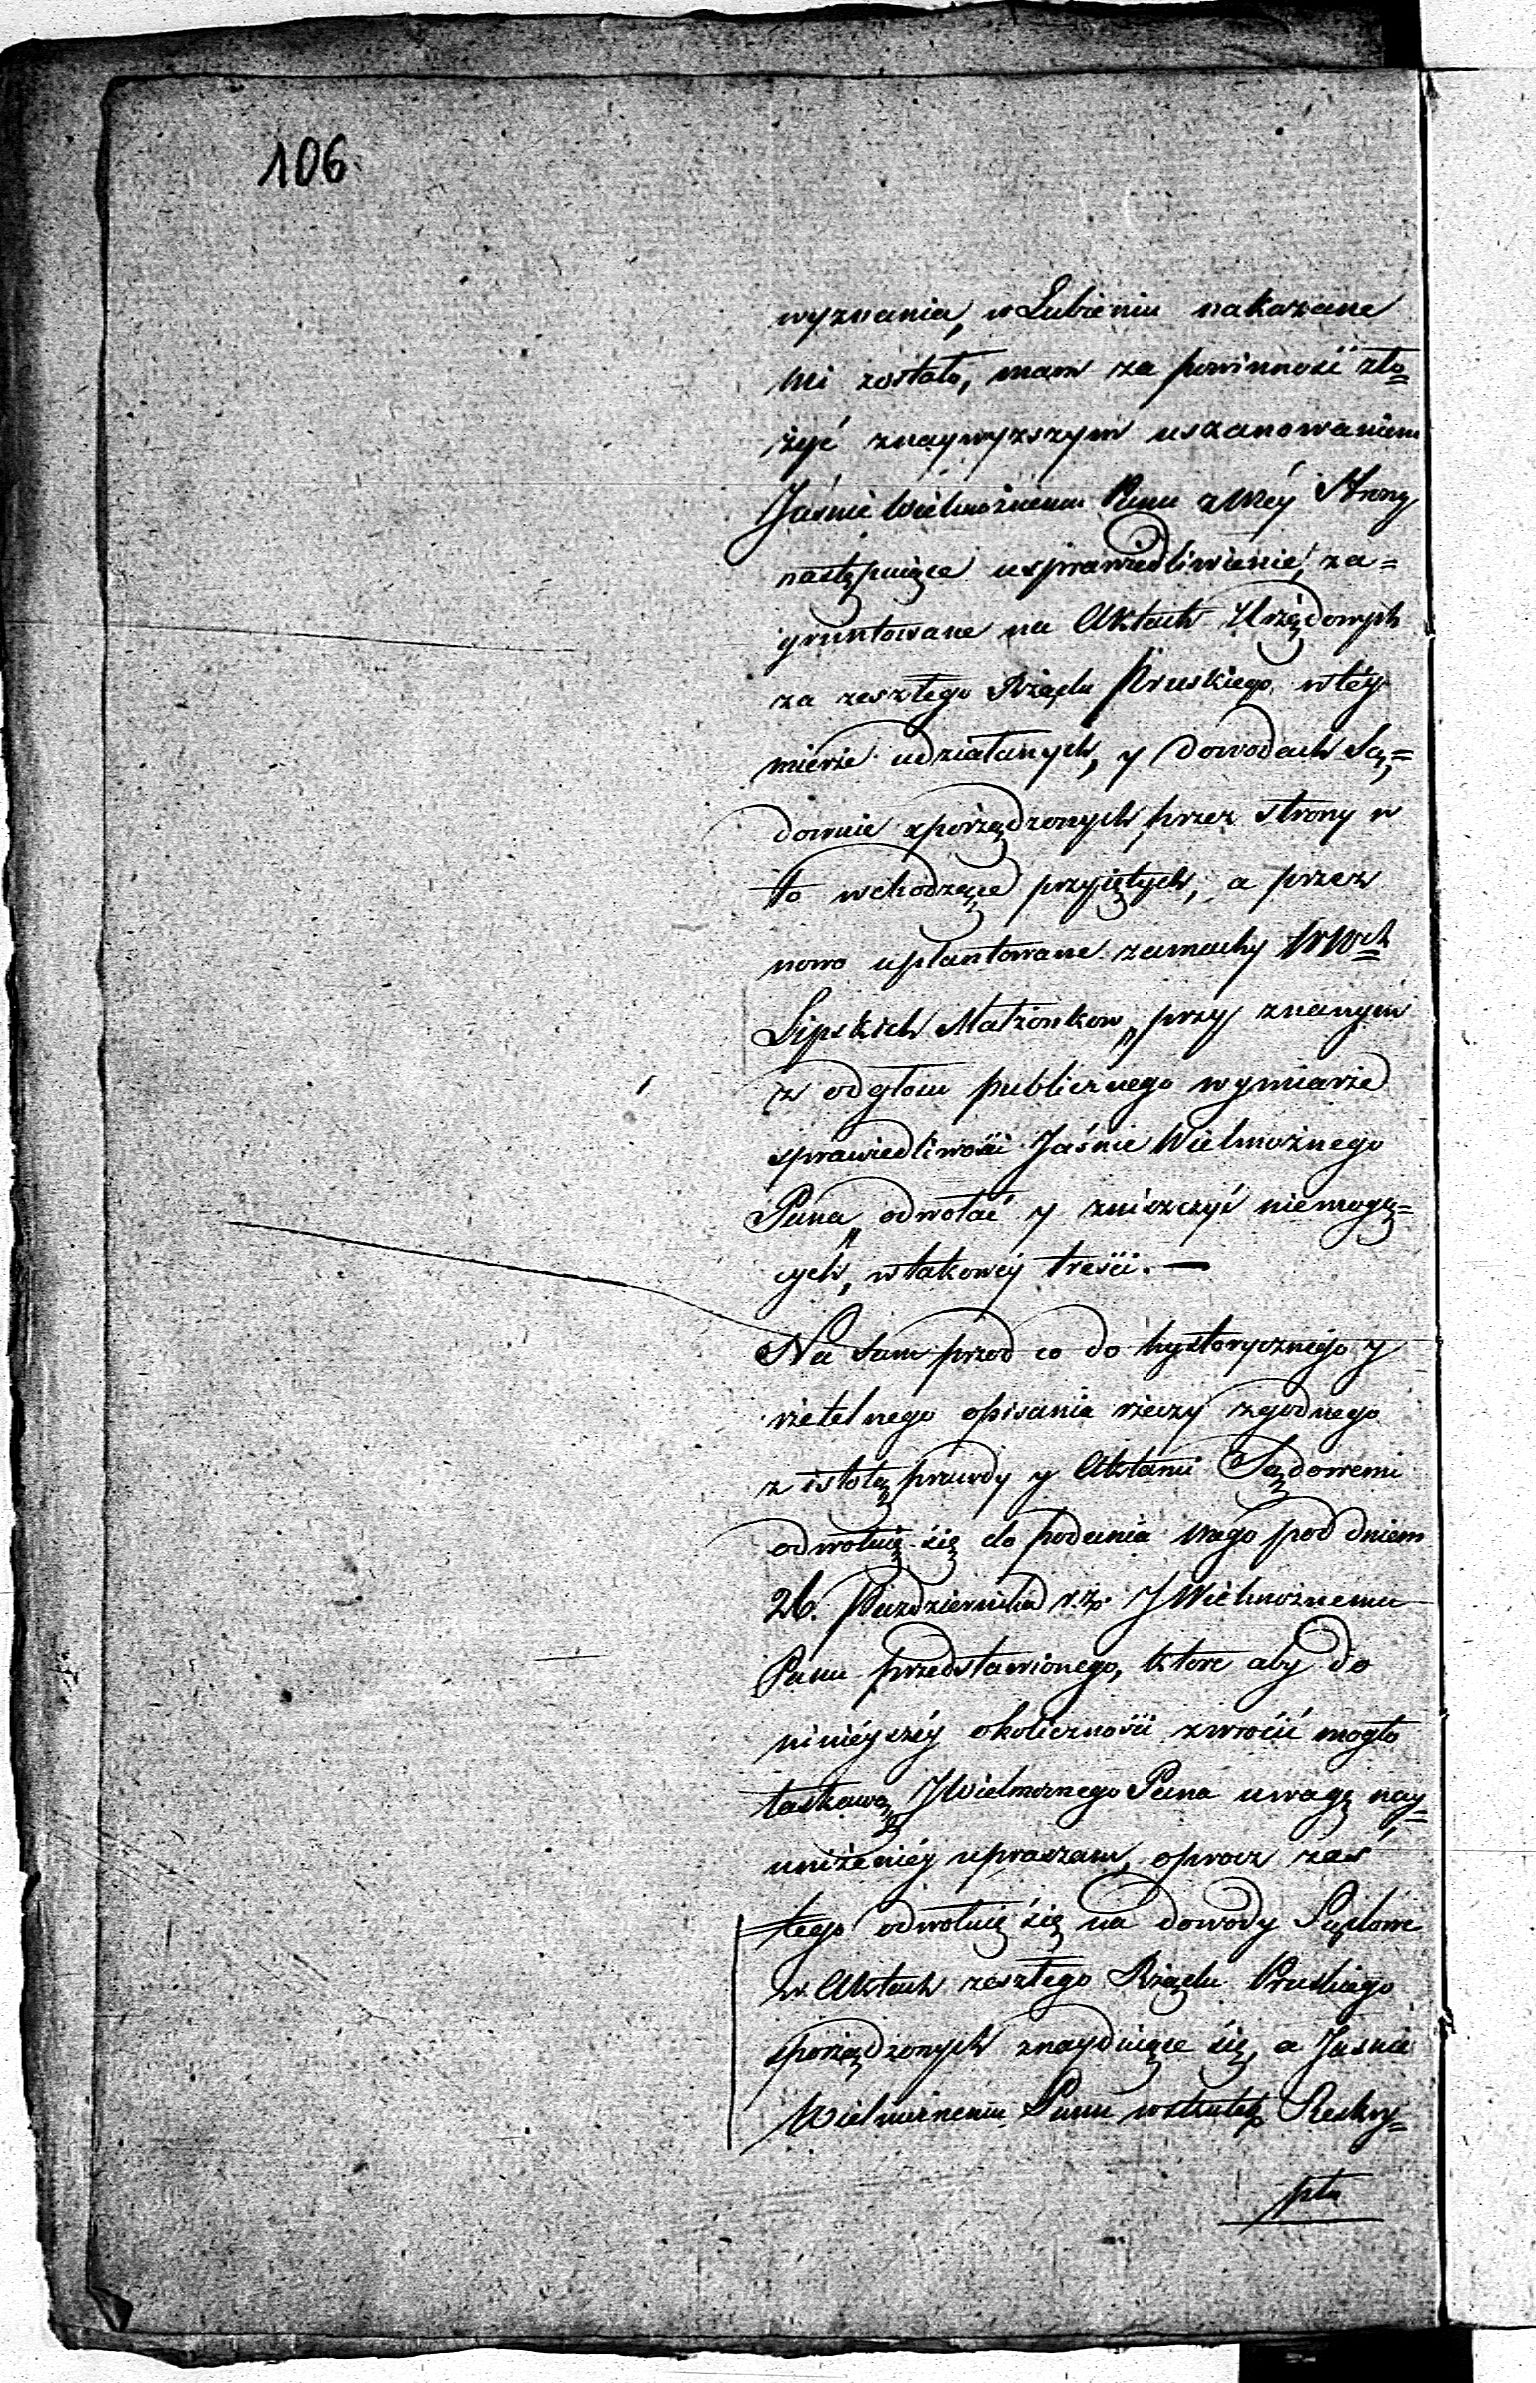 106.
wyznania, w Lubieniu nakazane
mi zostało, mam za powinność zło=
żyć z naywyzszym uszanowaniem
Jaśnie Wielmożnemu Panu z mey Strony
następuiące usprawiedliwienie, za=
gruntowane na Aktach Urzędowych
za zeszłego Rządu Pruskiego, w tey
mierze udziałanych, y dowodach Są=
downie sporządzonych, przez strony w
to wchodzące przyiętych, a przez
nowo uplantowane zamachy WWch
Lipskich Małżonkow, przy znanym
z odgłosu publicznego wymiarze
sprawiedliwości Jaśnie Wielmożnego
Pana, odwołać y zniszczyć niemogą=
cych, w takowey treści. —
Na sam przod co do hystorycznego y
rzetelnego opisania rzeczy zgodnego
z istotą prawdy y Aktami Sądowemi
odwołuię się do podania mego pod dniem
26. Pazdziernika r. z. JWielmożnemu
Panu przedstawionego, ktore aby do
ninieyszey okoliczności zwrócić mogło
łaskawą JWielmożnego Pana uwagę nay=
uniżeniey upraszam, oprocz zaś
tego odwołuię się na dowody Sądowe
w Aktach zeszłego Rządu Pruskiego
sporządzonych znayduiące się, a Jaśnie
Wielmożnemu Panu w skutek Reskry=
ptu